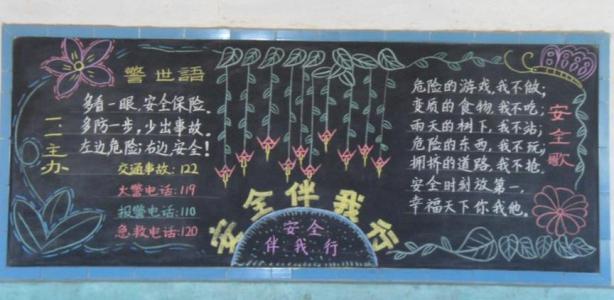 警世語
多看一眼,安全保险
多防一步,少出事故.
左边危险,右边安全!
交通事故:122
火警电话:119
报警电话:110
急救电话:120
一二主办
安全伴我行
安全
伴我行
危险的游戏,我不做;
变质的食物,我不吃;
雨天的树下,我不站;
危险的东西,我不玩;
拥挤的道路,我不抢.
安全时刻放第一,
幸福天下你我他。
安全歌